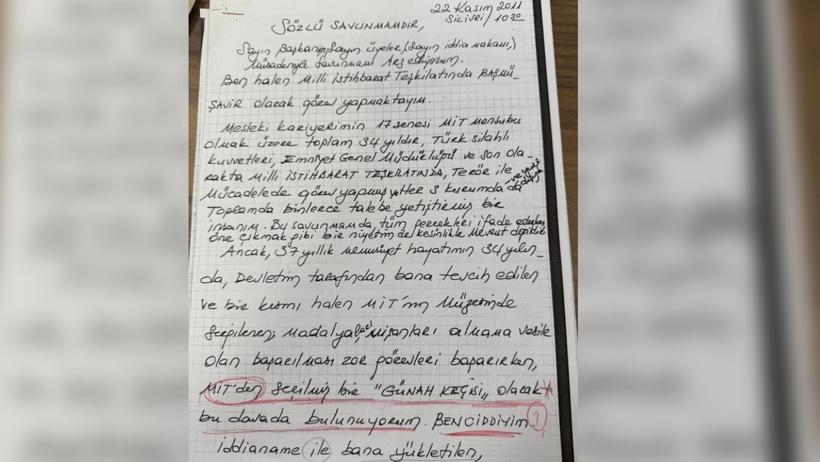 22 Kasım 2011
Silivri / 10 30
SÖZLÜ SAVUNMAMDIR,
Sayın Başkanım, Sayın üyeler, (Sayın iddia makamı,)
Müsadenizle savunmamı Arz ediyorum.
Ben halen Milli İstihbarat Teşkilatında BAŞMÜ_
ŞAVİR olarak görev yapmaktayım.
Mesleki kariyerimin 17 senesi MİT Mensubu
olmak üzere toplam 34 yıldır, Türk silahlı
kuvvetleri, Emniyet Genel Müdürlüğü ve son ola_
rakta Milli İSTİHBARAT TEŞKİLATINDA, Terör ile
Mücadelede görev yapmış her 3 kurumda da
Toplamda binlerce talebe yetiştirmiş bir
insanım. Bu savunmamda, tüm gerçekleri ifade ederken,
öne çıkmak gibi bir niyetim de kesinlikle mevcut değildir.
Ancak, 37 yıllık memuriyet hayatımın 34 yılın_
da, Devletim tarafından bana tevcih edilen
ve bir kısmı halen MİT'in Müzesinde
sergilenen; madalya, nişanları almama vesile
olan başarılması zor görevleri başarırken,
MİT'den seçilmiş bir "GÜNAH KEÇİSİ" olarak
bu davada bulunuyorum. BEN CİDDİYİM.
iddianame ile bana yükletilen,